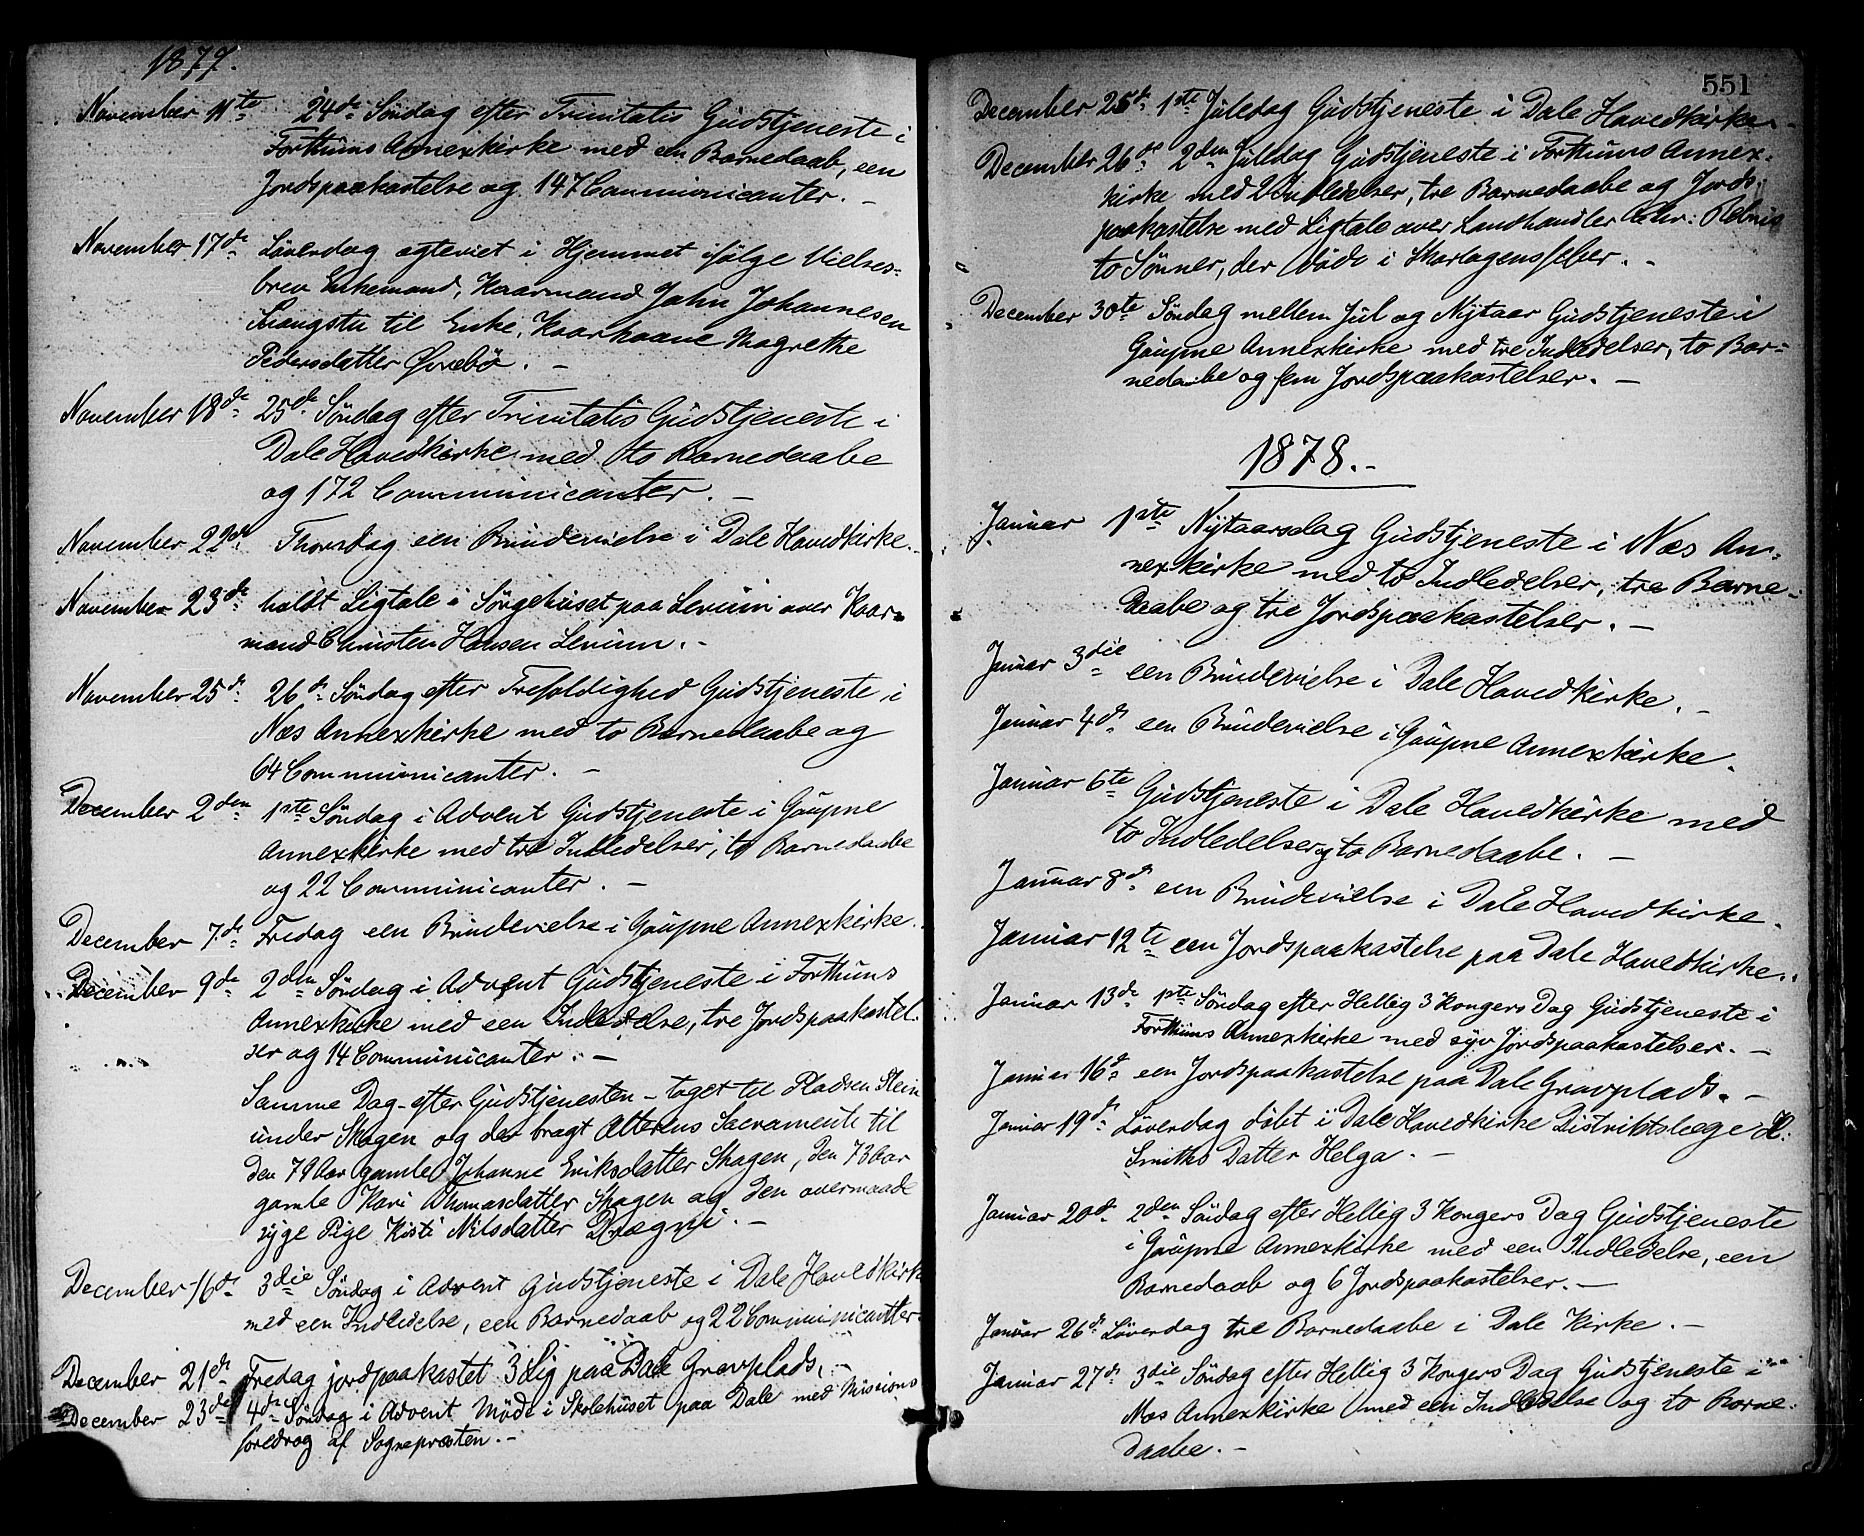 1877.
November 11te 24de Søndag efter Trinitatis Gudstjeneste i
Forthuns Annexkirke med een Barnedaab, een
Jordspaakastelse og 147 Communicanter. -
November 17de Løverdag egteviet i Hjemmet ifølge Vielses-
brev Enkemand, Kaarmand John Johannesen
til Enke, Kaarkaane Magrethe
Pedersdatter Øvrebø. -
November 18de 25de Søndag efter Trinitatis Gudstjeneste i
Dale Hovedkirke med to Barnedaabe
og 172 Communicanter. -
November 22de Thorsdag een Brudevielse i Dale Hovedkirke. -
November 23de holdt Ligtale i Sørgehuset paa Leruum over Kaar-
mand Christen Hansen Leruum. -
November 25de 26de Søndag efter Trefoldighed Gudstjeneste i
Næs Annexkirke med to Barnedaabe og
64 Communicanter. -
December 2den 1ste Søndag i Advent Gudstjeneste i Gaupne
Annexkirke med tre Indledelser, to Barnedaabe
og 22 Communicanter. -
December 7de Fredag een Brudevielse i Gaupne Annexkirke. -
December 9de 2den Søndag i Advent Gudstjeneste i Forthuns
Annexkirke med een Indledelse, tre Jordspaakastel-
ser og 14 Communicanter. -
Samme Dag - efter Gudstjenesten - taget til Pladsen Stein
under Skagen og der bragt Alterens Sacramente til
den 79 Aar gamle Johanne Eriksdatter Skagen, den 73 Aar
gamle Kari Thomasdatter Skagen og den overmaade
syge Pige Kisti Nilsdatter Drægni. -
December 16de 3die Søndag i Advent Gudstjeneste i Dale Hovedkirk
med een Indledelse, een Barnedaab og 22 Communicanter.
December 21de Fredag jordpaakastet 3 Lig paa Dale Gravplads. -
December 23de 4de Søndag i Advent Møde i Skolehuset paa Dale med Missions
foredrag af Sognepræsten. -
551
December 25de 1ste Juledag Gudstjeneste i Dale Hovedkirke. -
December 26de 2den Juledag Gudstjeneste i Forthuns Annex-
kirke med 2 Indledelser, tre Barnedaabe og Jords-
paakastelse med Ligtale over Landhandler
to Sønner, der døde i Skarlagensfeber. -
December 30te Søndag mellem Jul og Nytaar Gudstjeneste i
Gaupne Annexkirke med tre Indledelser, to Bar-
nedaabe og fem Jordspaakastelser. -
1878. -
Januar 1ste Nytaarsdag Gudstjeneste i Næs An-
nexkirke med to Indledelser, tre Barne-
daabe og tre Jordspaakastelser. -
Januar 3die een Brudevielse i Dale Hovedkirke. -
Januar 4de een Brudevielse i Gaupne Annexkirke.
Januar 6te Gudstjeneste i Dale Hovedkirke med
to Indledelser og to Barnedaabe. -
Januar 8de een Brudevielse i Dale Hovedkirke.
Januar 12te een Jordspaakastelse paa Dale Hovedkirke. -
Januar 13de 1ste Søndag efter Hellig 3 Kongers Dag Gudstjeneste i
Forthuns Annexkirke med syv Jordspaakastelser. -
Januar 16de een Jordspaakastelse paa Dale Gravplads. -
Januar 19de Løverdag døbt i Dale Hovedkirke Distriktslæge H.
Smiths Datter Helga. -
Januar 20de 2den Søndag efter Hellig 3 Kongers Dag Gudstjeneste
i Gaupne Annexkirke med een Indledelse, een
Barnedaab og 6 Jordspaakastelser. -
Januar 26de Løverdag tre Barnedaabe i Dale Kirke. -
Januar 27de 3die Søndag efter Hellig 3 Kongers Dag Gudstjeneste i
Næs Annexkirke med een Indledelse og to Barne-
daabe. -